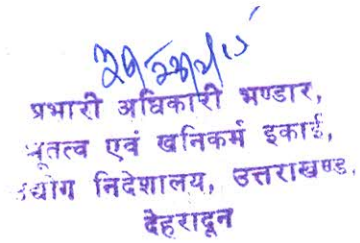 प्रभारी अधिकारी भण्डार,
भूतत्व एवं खनिकर्म इकाई,
उद्योग निदेशालय, उत्तराखण्ड,
देहरादून